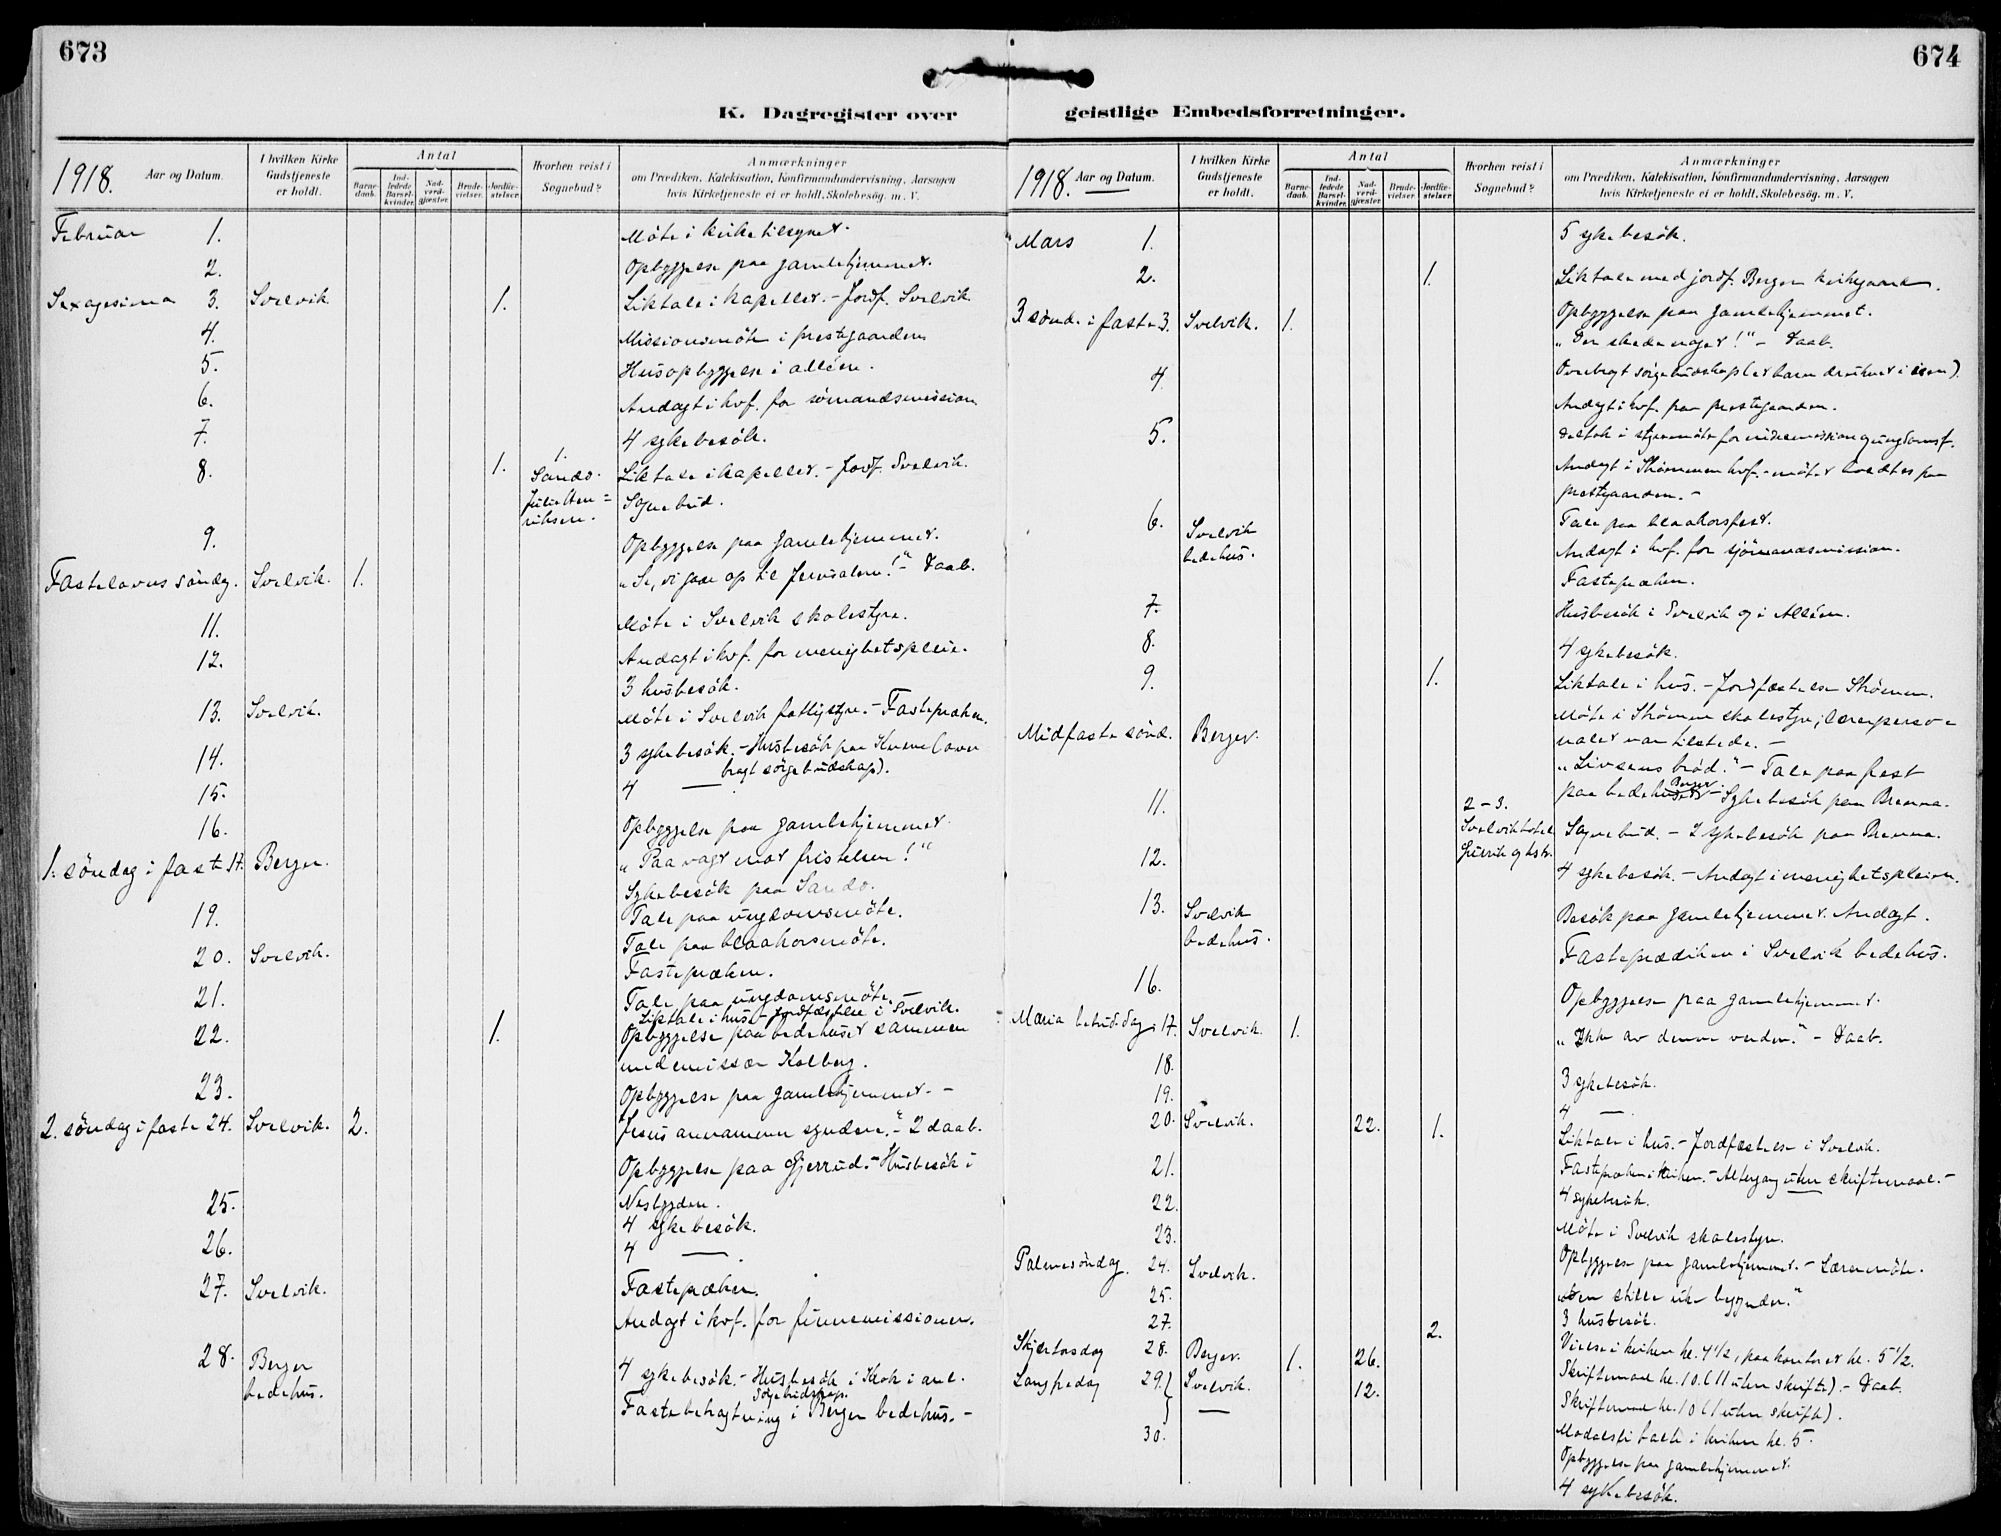 673
K. Dagregister over
1918.
Aar og Datum.
I hvilken Kirke Gudstjeneste er holdt.
Antal
Barne-daab.
Ind-ledede Barsel-kvinder.
Nad-verd-gjæster.
Brude-vielser.
Jordfæ-stelser.
Hvorhen reist i Sognebud?
Anmærkninger
om Prædiken, Katekisation, Konfirmandundervisning, Aarsagen
hvis Kirketjeneste ei er holdt, Skolebesøg. m. V.
Februar 1. Møte i kirketilsynet.
2. Opbyggelse paa gamlehjemmet.
Sexagesima 3. Svelvik 1. Liktale i kapellet. - Jordf. Svelvik
4. Missionsmöte i prestegaarden
5. Husopbyggelse i alléen.
6. Andagt i kvf. for sömandsmission
7. 4 sykebesök.
8. 1. 1. Sando. Liktale i kapellet. - Jordf. Svelvik.
Julie Hen=
riksen. Sognebud.
9. Opbyggelse paa gamlehjemmet.
Fastelavns söndag. Svelvik. 1. „Se, vi gaar op til Jerusalem!" - Daab.
11. Möte i Svelvik skolestyre.
12. Andagt i kvf. for menighetspleie.
3 husbesök.
13. Svelvik. Möte i Svelvik fattigstyre. - Fastepræken.
14. 3 sykebesök. - Husbesök paa (over
bragt sörgebudskap).
15. 4 —
16. Opbyggelse paa gamlehjemmet.
1. söndag i faste 17. Berger. „Paa vagt mot fristelsen!"
Sykebesök paa Sando.
19. Tale paa ungdomsmöte.
Tale paa blaakorsmöte.
20. Svelvik. Fastepræken.
21. Tale paa ungdomsmöte.
Liktale i hus - Jordfæstelse i Svelvik.
22. 1. Opbyggelse paa bedehuset sammen
med emissær Kolberg.
23. Opbyggelse paa gamlehjemmet. -
2. söndag i faste 24. Svelvik. 2. „Jesus annammer syndere." - 2 daab.
Opbyggelse paa Gjerrud. - Husbesök i
Nesbygden.
25. 4 sykebesök.
26. 4 — .
27. Svelvik. Fastepræken.
Andagt i kvf. for finnemissionen.
28. Berger
bedehus. 4 sykebesök. - Husbesök i Krok i anl.
Sörgebudskap.
Fastebetragtning i Berger bedehus. -
674
geistlige Embedsforretninger.
1918.
Aar og Datum.
I hvilken Kirke Gudstjeneste er holdt.
Antal
Barne-daab.
Ind-ledede Barsel-kvinder.
Nad-verd-gjæster.
Brude-vielser.
Jordfæ-stelser.
Hvorhen reist i Sognebud?
Anmærkninger
om Prædiken, Katekisation, Konfirmandundervisning, Aarsagen
hvis Kirketjeneste ei er holdt, Skolebesög. m. V.
Mars 1. 5 sykebesök.
2. 1. Liktale med jordf. Berger kirkegaard.
Opbyggelse paa gamlehjemmet.
3. sönd. i faste 3. Svelvik. 1. „Der skede noget!" - Daab.
4. Overbragt sörgebudskap (et barn druknet i isen).
Andagt i kvf. paa prestegaarden.
5. Deltok i styremöte for indremission og ungdomsf.
Andagt i Strömmen kvf. - mötet holdtes paa
prestgaarden. -
6. Svelvik
bedehus. Tale paa blaakorsfest.
Andagt i kvf. for sjömandsmission.
Fastepræken.
7. Husbesök i Svelvik og i Alléen.
8. 4 sykebesök.
9. 1. Liktale i hus. - Jordfæstelse Strömm.
Möte i Strömm skolestyre; lærerperso=
nalet var tilstede. -
Midfaste sönd. Berger. „Livsens bröd." - Tale paa fest
paa bedehuset Berger - Sykebesök paa Brenna.
11. 2-3.
Svelvik hotel Sognebud. - 2 sykebesök paa Brenna.
12. 4 sykebesök. - Andagt i menighetspleien.
13. Svelvik
bedehus. Besök paa gamlehjemmet. Andagt.
Fasteprædiken i Svelvik bedehus.
16. Opbyggelse paa gamlehjemmet.
Maria bebud. dag 17. Svelvik. 1. „Ikke av denne verden." - Daab.
18. 3 sykebesök.
19. 4 —
20. Svelvik. 22. 1. Liktale i hus. - Jordfæstelse i Svelvik.
Fastepræken i kirken. - Altergang uten skriftemaal. -
21. 4 sykebesök.
22. Möte i Svelvik skolestyre.
23. Opbyggelse paa gamlehjemmet. - Læremöte.
Palmesöndag 24. Svelvik. „Den stille uke begynder."
25. 3 husbesök.
27. 2. Vielse i kirken kl. 4½, paa kontoret kl. 5½.
Skjærtorsdag 28. Berger. 1. 26. Skriftemaal kl. 10 (11 uten skrifte). - Daab.
Langfredag 29. Svelvik. 12. Skriftemaal kl. 10 (11 uten skrifte).
— i kirken kl. 5.
30. Opbyggelse paa gamlehjemmet.
4 sykebesök.